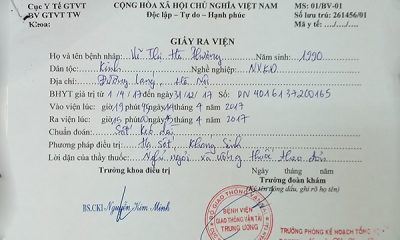 Cục Y TẾ GTVT CỘNG HÒA XÃ HỘI CHỦ NGHĨA VIỆT NAM MS: 01/BV-01
BV GTVT TW Độc lập - Tự do - Hạnh phúc Số lưu trú: 261456/01
Khoa: Mã y tế: ..../....
GIẤY RA VIỆN
Họ và tên bệnh nhân: Vũ Thị Hà Phương Năm sinh: 1990
Dân tộc: Kinh Nghề nghiệp: NVKD
Địa chỉ: Hà Nội
BHYT giá trị từ 1/4/17 đến ngày 31/12/17 Số: DN 4016137200165
Vào viện lúc: giờ 4 2017
Ra viện lúc: giờ 4 2017
Chuẩn đoán: Sốt kéo dài
Phương pháp điều trị: Hạ Sốt, Kháng Sinh
Lời dặn của thầy thuốc: Nghỉ ngơi và uống thuốc theo đơn
Trưởng khoa điều trị Trưởng đoàn khám
(Ký tên đóng dấu, ghi rõ họ tên)
BS.CKI Nguyễn Kim Minh
BỆNH VIỆN
GIAO THÔNG VẬN TẢI
TRUNG ƯƠNG
TRƯỞNG PHÒNG KẾ HOẠCH TỔNG